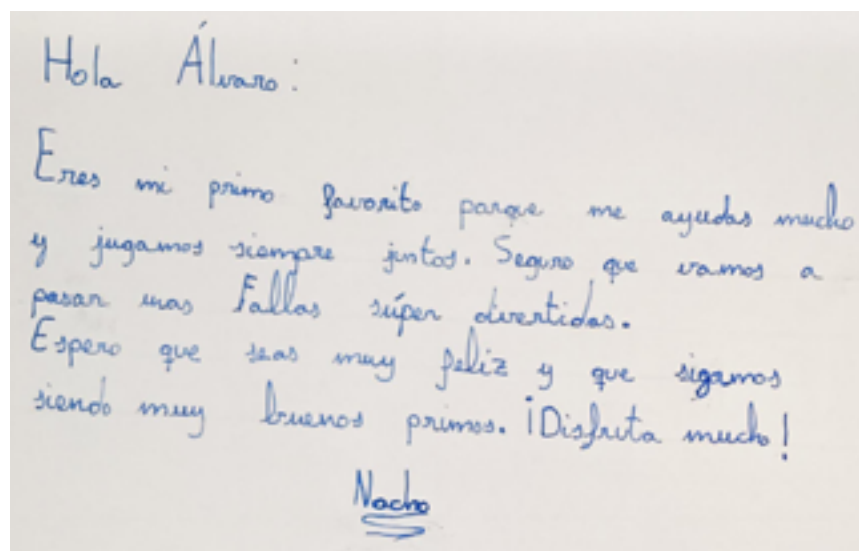 Hola Álvaro:
Eres mi primo favorito porque me ayudas mucho
y jugamos siempre juntos. Seguro que vamos a
pasar unas Fallas súper divertidas.
Espero que seas muy feliz y que sigamos
siendo muy buenos primos. ¡Disfruta mucho!
Nacho